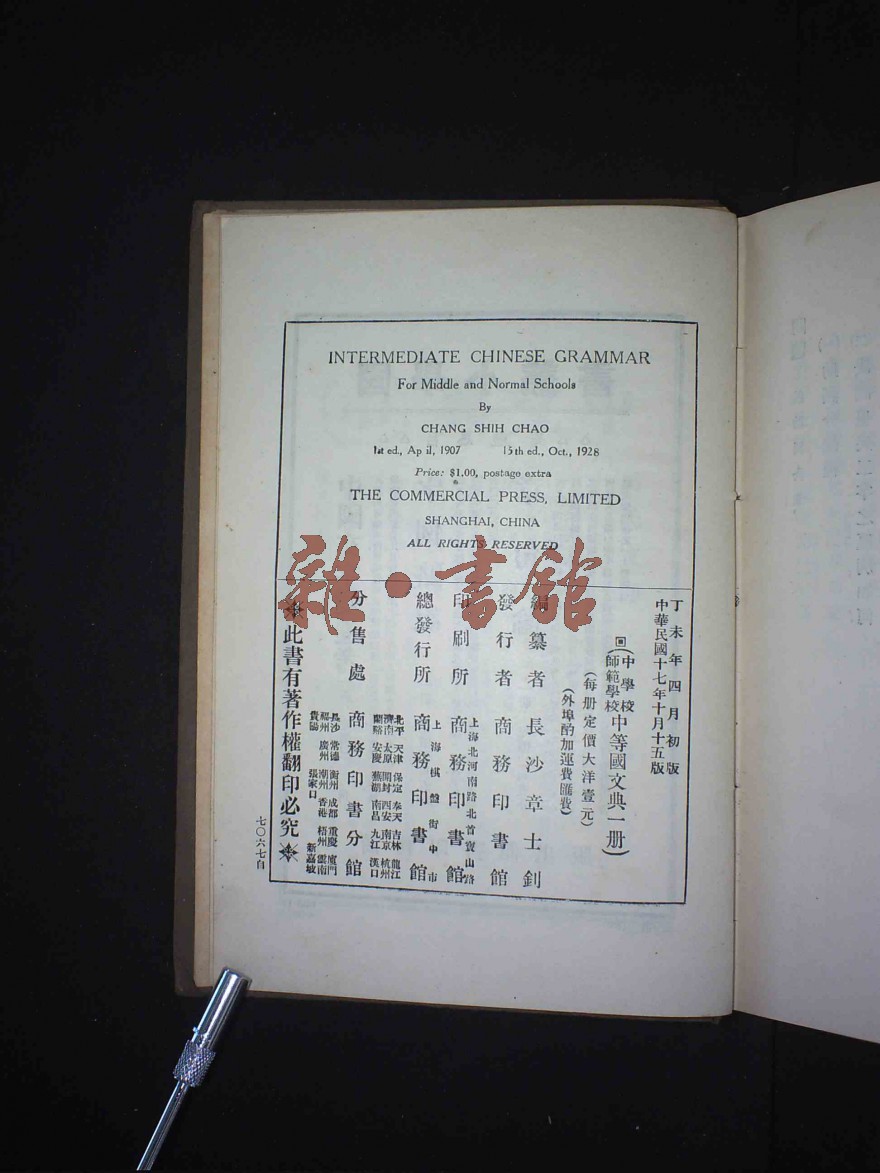 INTERMEDIATE CHINESE GRAMMAR
For Middle and Normal Schools
By
CHANG SHIH CHAO
1st ed., Ap il, 1907 15th ed., Oct., 1928
Price: $1.00, postage extra
THE COMMERCIAL PRESS, LIMITED
SHANGHAI, CHINA
ALL RIGHTS RESERVED
雜·書館
丁未年四月初版
中華民國十七年十月十五版
(中學校師範學校中等國文典一册)
(每册定價大洋壹元)
(外埠酌加運費匯費)
編纂者 長沙章士釗
發行者 商務印書館
印刷所 上海北河南路北首寶山路 商務印書館
總發行所 上海棋盤街中市 商務印書館
分售處 商務印書分館
北平 天津 保定 奉天 吉林 龍江
濟南 太原 開封 西安 南京 杭州
蘭谿 安慶 蕪湖 南昌 九江 漢口
長沙 常德 衡州 成都 重慶 廈門
福州 廣州 潮州 香港 梧州 雲南
貴陽 張家口 新嘉坡
此書有著作權翻印必究
七〇六七自